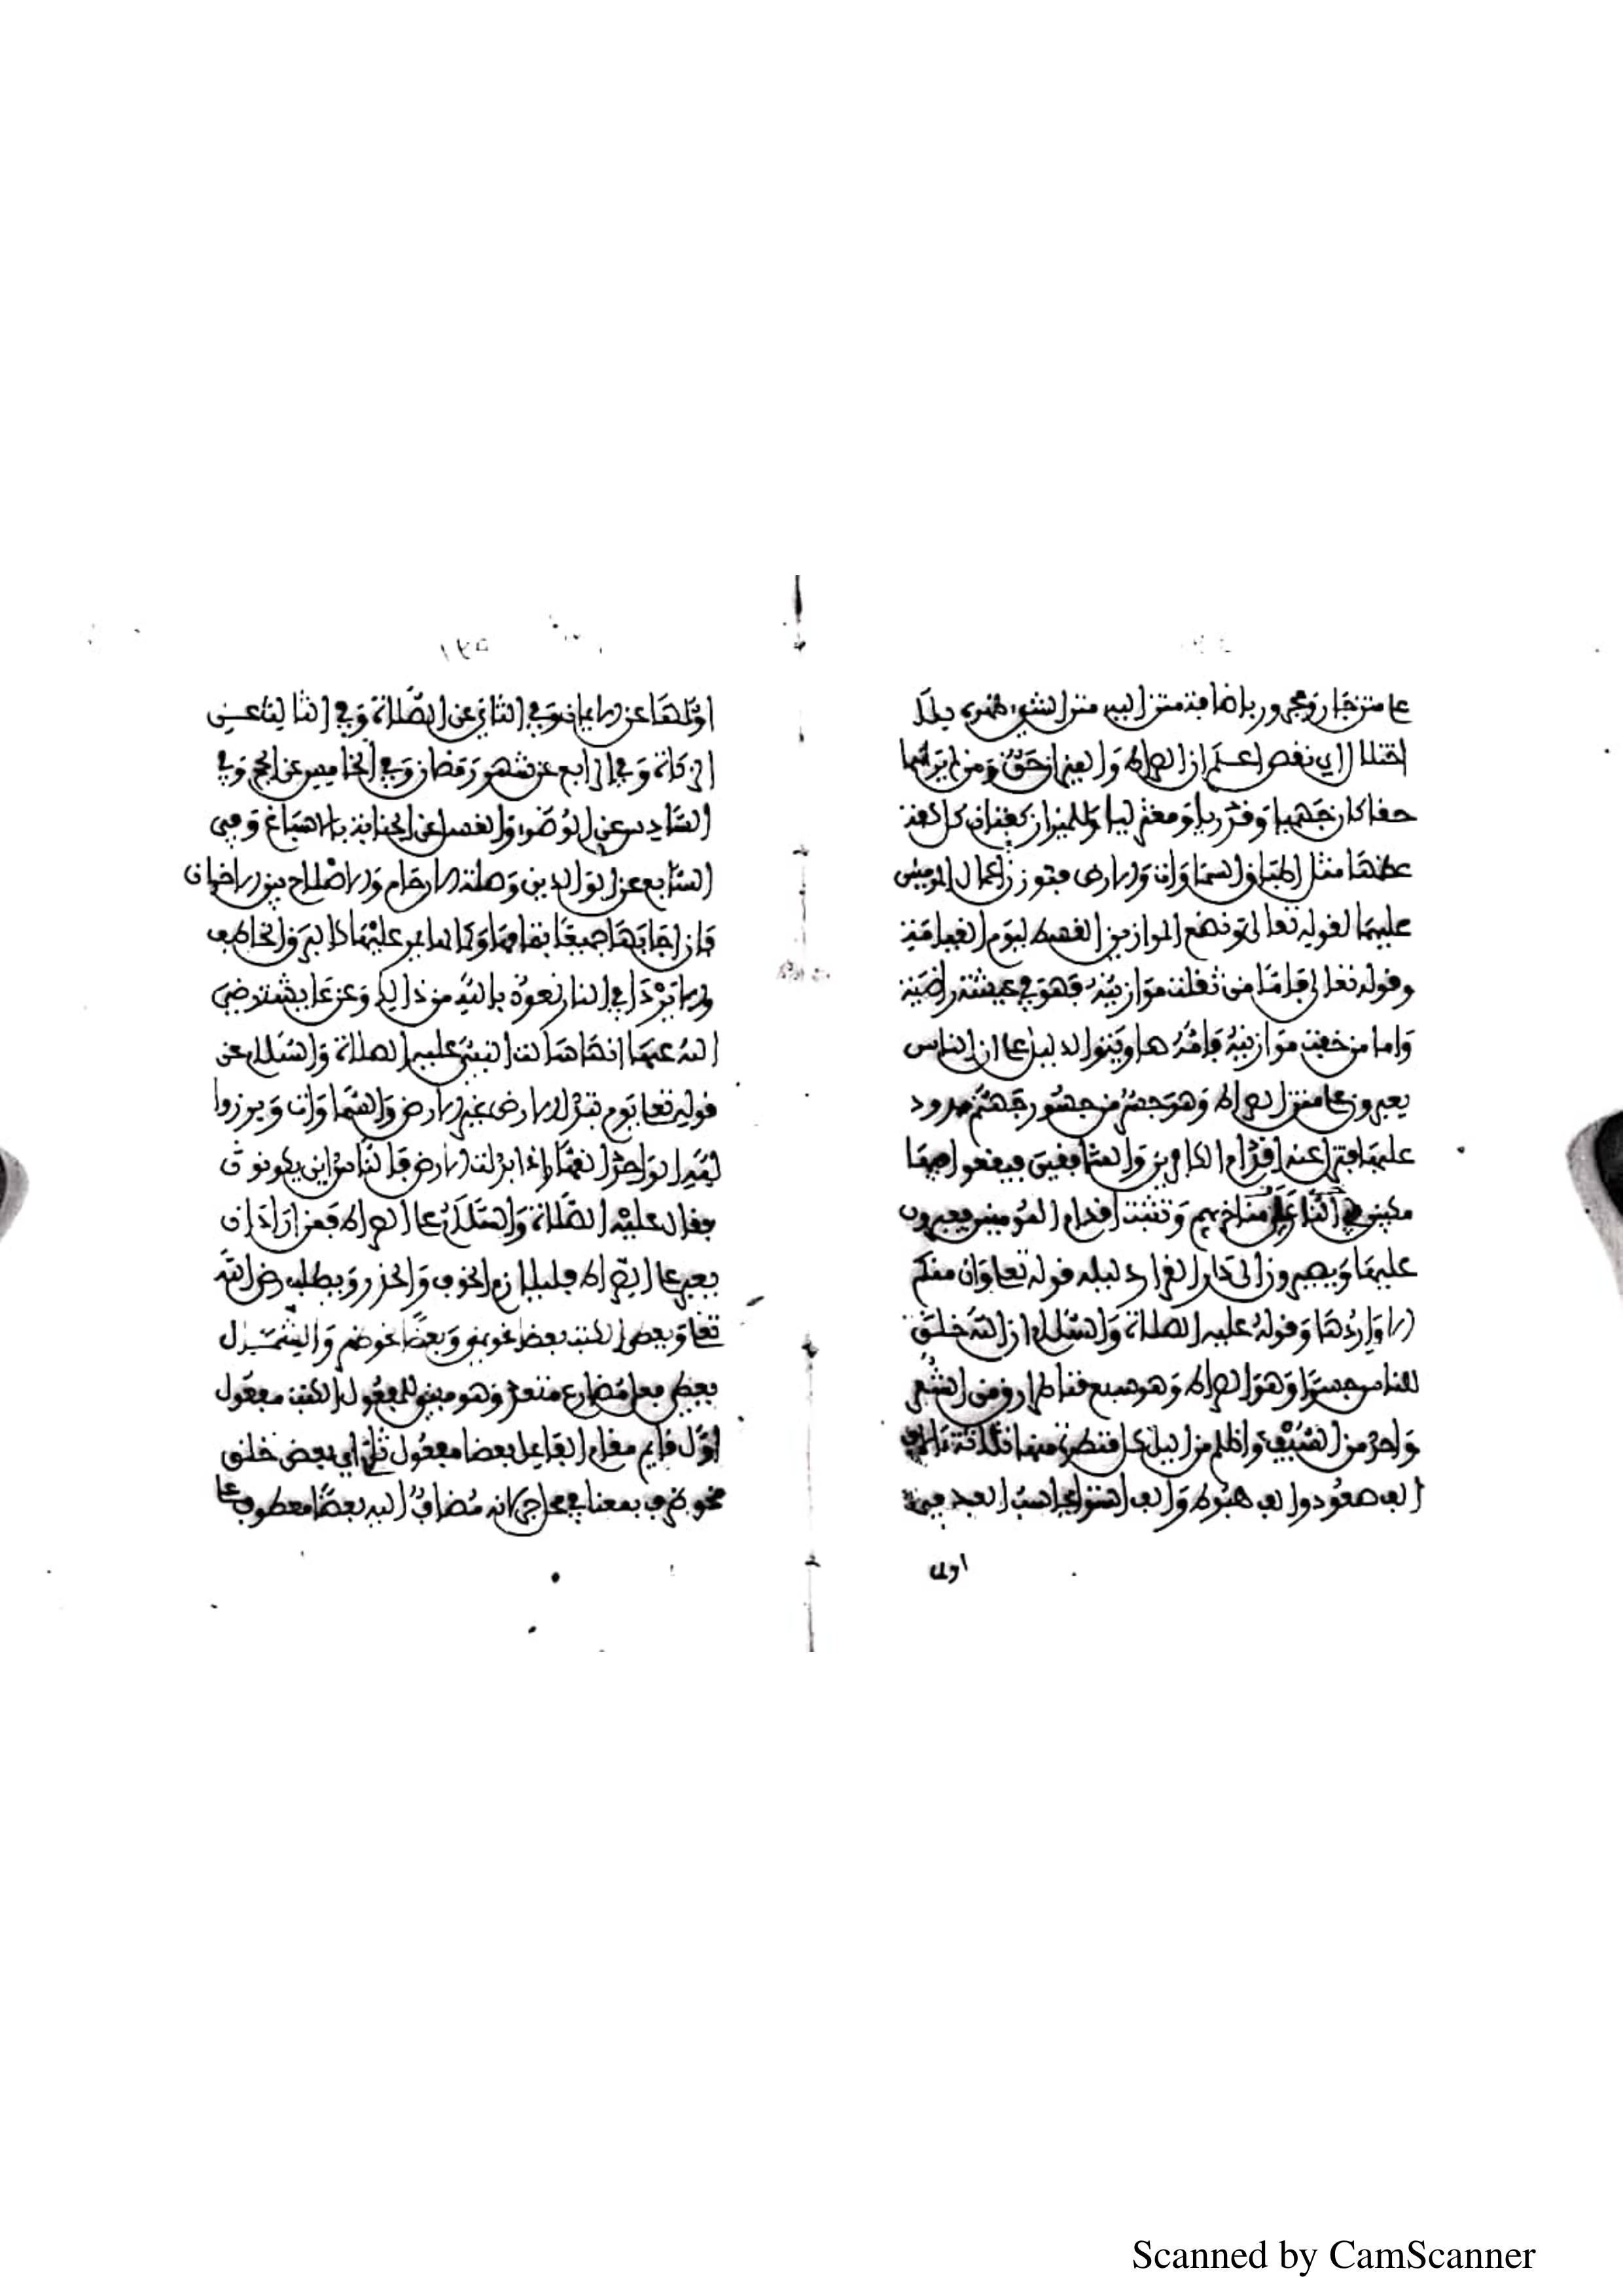 على متن جار ومجرور باضافة متن اليه متن الشيء ظهره بلا
اختلال اي نقص اعلم ان الصراط والميزان حق ومن لم يراهما
حقا كان جهميا وقدريا ومعتزليا وللميزان كفتان كل كفة
عظمها مثل اطباق السماوات والارض فتوزن اعمال المومنين
عليهما لقوله تعالى ونضع الموازين القسط ليوم القيامة
وقوله تعالى فاما من ثقلت موازينه فهو في عيشة راضية
واما من خفت موازينه فامه هاوية والدليل على ان الناس
يعبرون على متن الصراط وهو جسر من جسور جهنم ممدود
عليها فتزل عنه اقدام الكافرين والمنافقين فيقعوا فيها
مكبين في النار على مناخرهم وتثبت اقدام المومنين فيعبرون
عليها ويصيرون الى دار القرار دليله قوله تعالى وان منكم
الا واردها وقوله عليه الصلاة والسلام ان الله خلق
للناس جسرا وهو الصراط وهو سبع قناطر ارق من الشعر
واحد من السيف واظلم من الليل كل قنطرة منها ثلاثة
الف صعود والف هبوط والف استواء يحاسب العبد في
اولا
اولها عن الايمان وفي الثاني عن الصلاة وفي الثالث عن
الزكاة وفي الرابع عن شهر رمضان وفي الخامس عن الحج وفي
السادس عن الوضوء والغسل عن الجنابة بالاسباغ وفي
السابع عن بر الوالدين وصلة الارحام والاصلاح بين الاخوان
فان اجابها جميعا بتمامها وكمالها مر عليها كالبرق الخاطف
والا تردا في النار نعوذ بالله من ذالك وعن عايشة رضي
الله عنها انها سالت النبي عليه الصلاة والسلام عن
قوله تعالى يوم تبدل الارض غير الارض والسماوات وبرزوا
لله الواحد القهار اذا بدلت الارض فالناس اين يكونون
فقال عليه الصلاة والسلام على الصراط فمن اراد ان
يعبر على الصراط فليلازم الخوف والحذر ويطلب رضى الله
تعالى ويعطى الكتب بعض نحو يمنى وبعضا نحو ضم والشمال
يعطى فعل مضارع متعد وهو مبني للمفعول الكتب مفعول
اول قايم مقام الفاعل بعضا مفعول ثان اي بعض خلق
نحو ظرف بمعنا في محل جر لانه مضاف اليه بعضا معطوف على